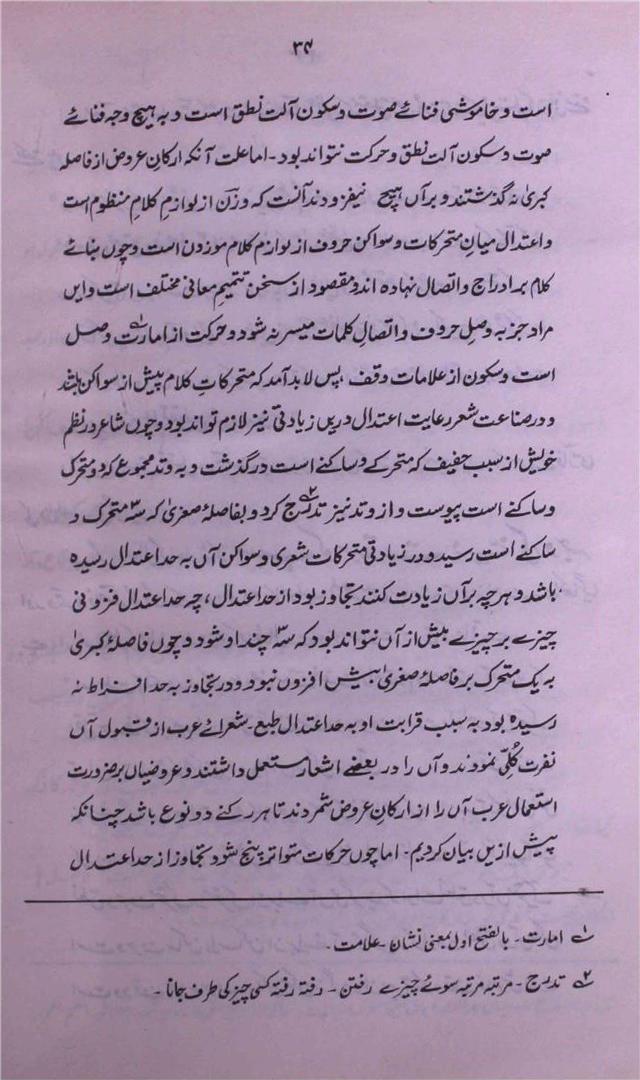 ۳۴
است و خاموشی فنائے صوت و سکون آلت نطق است و به هیچ وجه فنائے
صوت و سکون آلت نطق و حرکت نتواند بود۔ اما علت آنکه ارکانِ عروض از فاصله
کبریٰ نه گذشتند و بر آں هیچ نیفزودند آنست که وزن از لوازمِ کلامِ منظوم است
و اعتدال میانِ متحرکات و سواکنِ حروف از لوازمِ کلام موزون است و چوں بنائے
کلام بر ادراج و اتصال نهاده اند و مقصود از سخن تتمیمِ معانی مختلف است و ایں
مراد جز به وصلِ حروف و اتصالِ کلمات میسر نه شود و حرکت از امارت۱ وصل
است و سکون از علامات وقف ، پس لابد آمد که متحرکاتِ کلام پیش از سواکن باشد
و در صناعت شعر رعایت اعتدال دریں زیادتی نیز لازم تواند بود و چوں شاعر در نظم
خویش از سبب خفیف که متحرکے و ساکنے است درگذشت و به وتد مجموع که دو متحرک
و ساکنے است پیوست و از وتد نیز تدرج۲ کرد و بفاصلۂ صغریٰ که سہ متحرک و
ساکنے است رسید و در زیادتی متحرکات شعری و سواکن آں به حد اعتدال رسیده
باشد و هرچه برآں زیادت کنند تجاوز بود از حد اعتدال ، چه حد اعتدال فزونی
چیزے بر چیزے بیش از آں نتواند بود که سہ چند او شود و چوں فاصلۂ کبریٰ
به یک متحرک بر فاصلۂ صغریٰ بیش افزوں نبود و در تجاوز به حد افراط نه
رسیده بود به سبب قرابت او به حد اعتدال طبع۔ شعرائے عرب از قبول آں
نفرت کُلّی نمودند و آں را در بعضے اشعار مستعمل داشتند و عروضیاں بر ضرورت
استعمال عرب آں را از ارکانِ عروض شمردند تا هر رکنے دو نوع باشد چنانکه
پیش ازیں بیان کردیم۔ اما چوں حرکات متواتر پنج شود تجاوز از حد اعتدال
۱ امارت۔ بالفتح اول بمعنی نشان۔ علامت۔
۲ تدرج۔ مرتبه مرتبه سوئے چیزے رفتن۔ رفته رفته کسی چیز کی طرف جانا۔